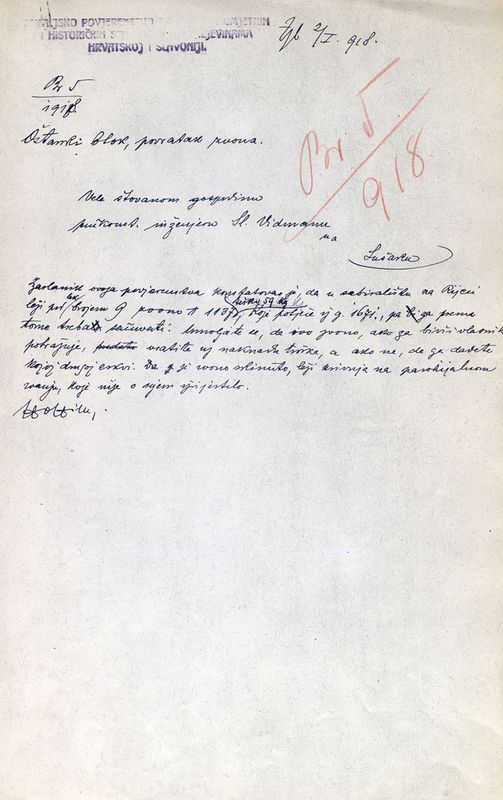 ZEMALJSKO POVJERENSTVO UMJETNIM
I HISTORIČKIM
HRVATSKOJ I SLAVONIJI.
Zgb 2/I. 918.
Br 5
1918
Br 5
918
Oštarski blok, povratak zvona.
Vele štovanom gospodinu
inženjeru St. Vidmaru
na
Sušaku
ovoga povjerenstva konstatovao je, da u sabiralištu na Rijeci
leži pod brojem 9 zvono koje potječe iz g. 1671., pa ga prema
tome treba sačuvati. Umoljate se, da ovo zvono, ako ga bivši vlasnik
potražuje, vratite uz naknadu troška, a ako ne, da ga dadete
kojoj drugoj crkvi. Da je zvono skinuto, leži krivnja na parohijalnom
zvanju, koje nije o njem izvijestilo.